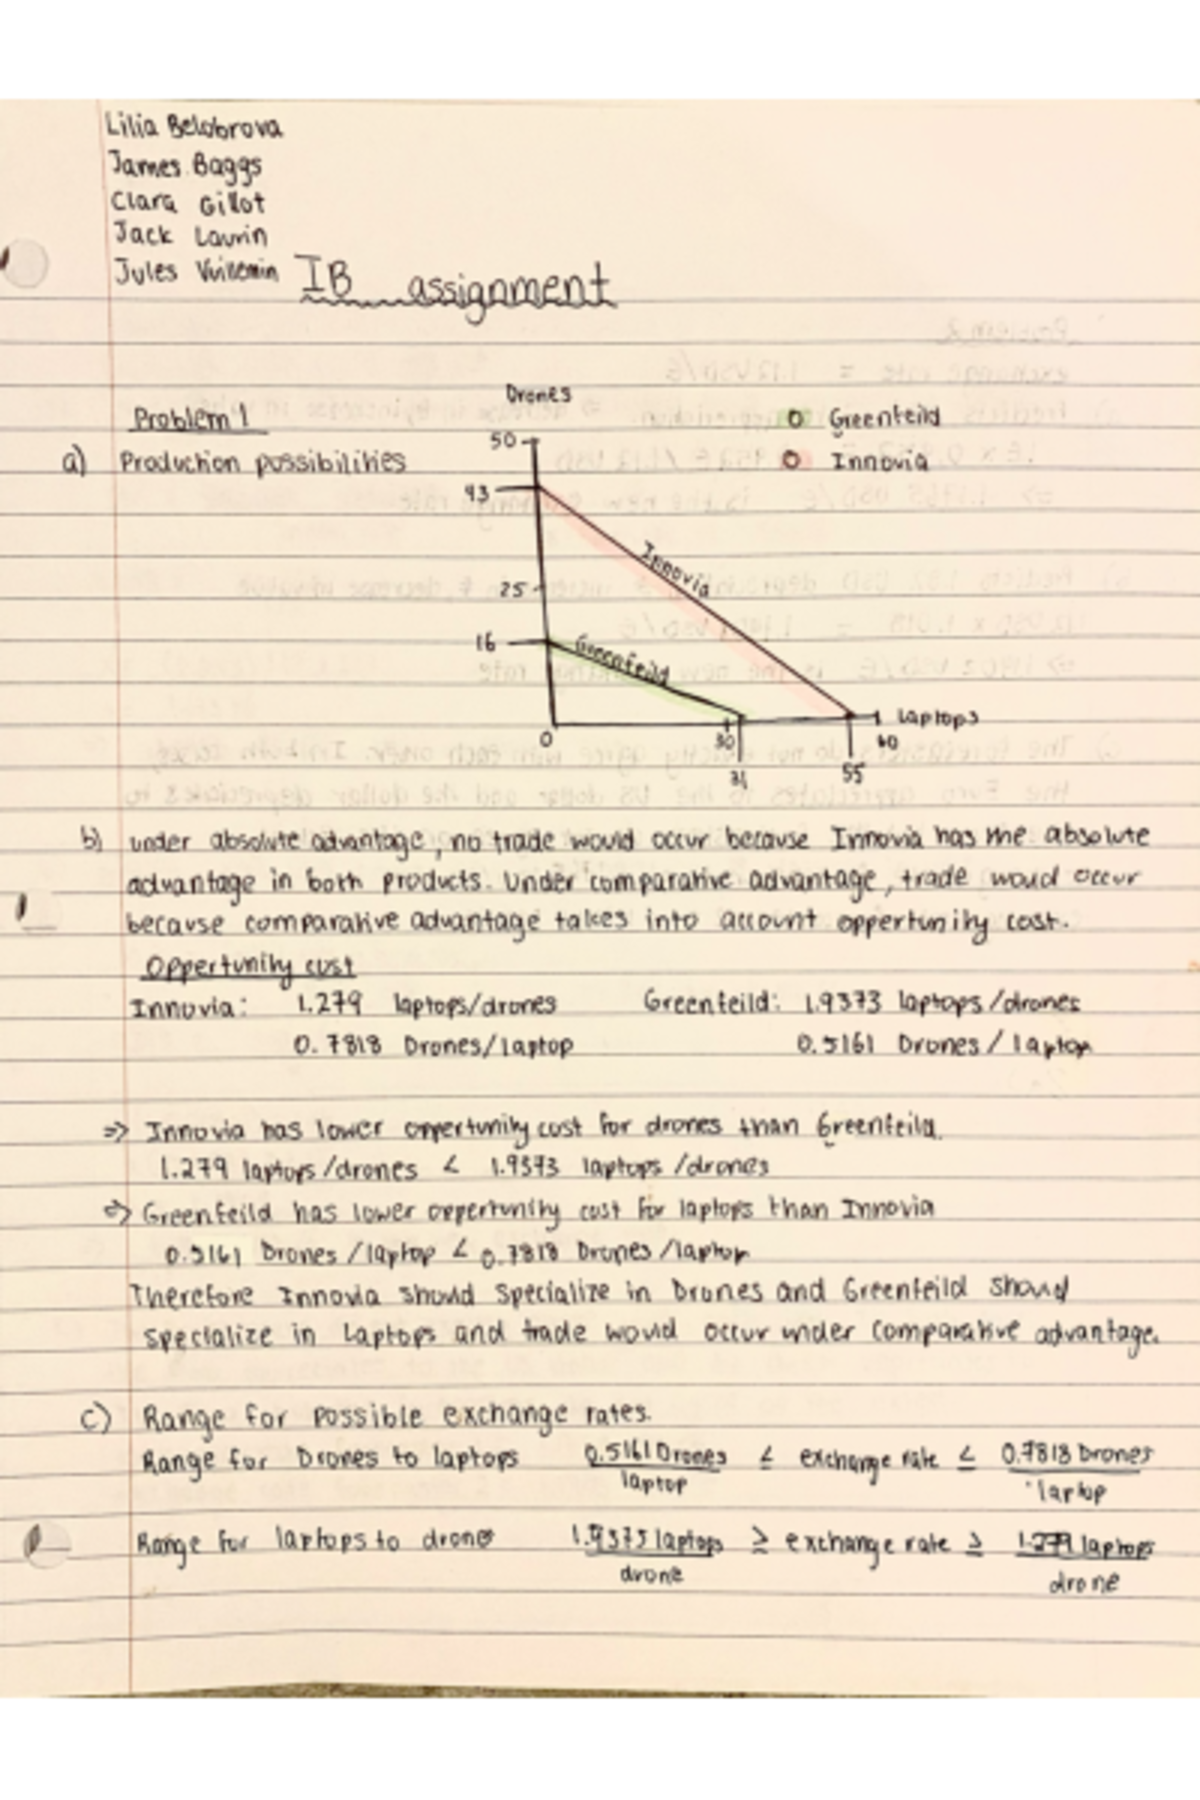 Lilia Belobrova
James Baggs
Clara Gillot
Jack Laurin
Jules Vuillemin
IB assignment
Problem 1
a) Production possibilities
Drones
50
43
25
16
0
30
31
55
60
Laptops
Innovia
Greenfeild
O Greenfeild
O Innovia
b) under absolute advantage, no trade would occur because Innovia has the absolute
advantage in both products. Under comparative advantage, trade woud occur
because comparative advantage takes into account oppertunity cost.
Oppertunity cost
Innovia: 1.279 laptops/drones Greenfeild: 1.9373 laptops/drones
0.7818 Drones/laptop 0.5161 Drones/laptop
=> Innovia has lower oppertunity cost for drones than Greenfeild.
1.279 laptops/drones < 1.9373 laptops/drones
=> Greenfeild has lower oppertunity cost for laptops than Innovia
0.5161 Drones/laptop < 0.7818 Drones/laptop
Therefore Innovia should specialize in Drones and Greenfeild should
specialize in Laptops and trade would occur under comparative advantage.
c) Range for possible exchange rates.
Range for Drones to laptops 0.5161 Drones/laptop ≤ exchange rate ≤ 0.7818 Drones/laptop
Range for laptops to drone 1.9375 laptops/drone ≥ exchange rate ≥ 1.279 laptops/drone